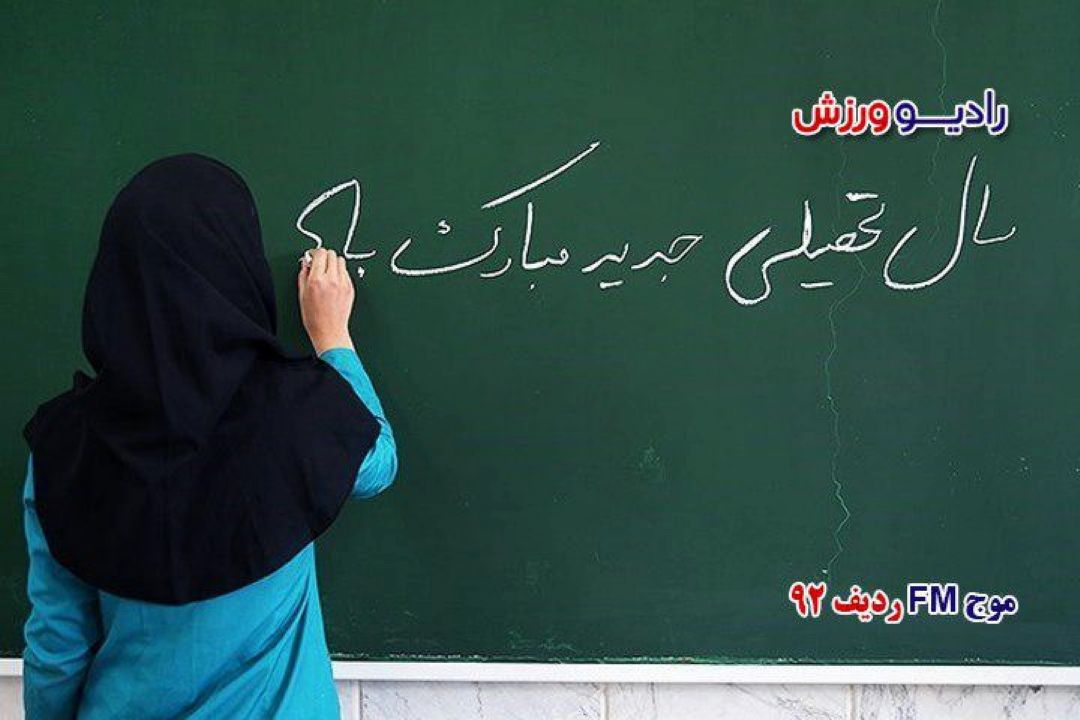 رادیو ورزش
سال تحصیلی جدید مبارک
موج FM ردیف ۹۲